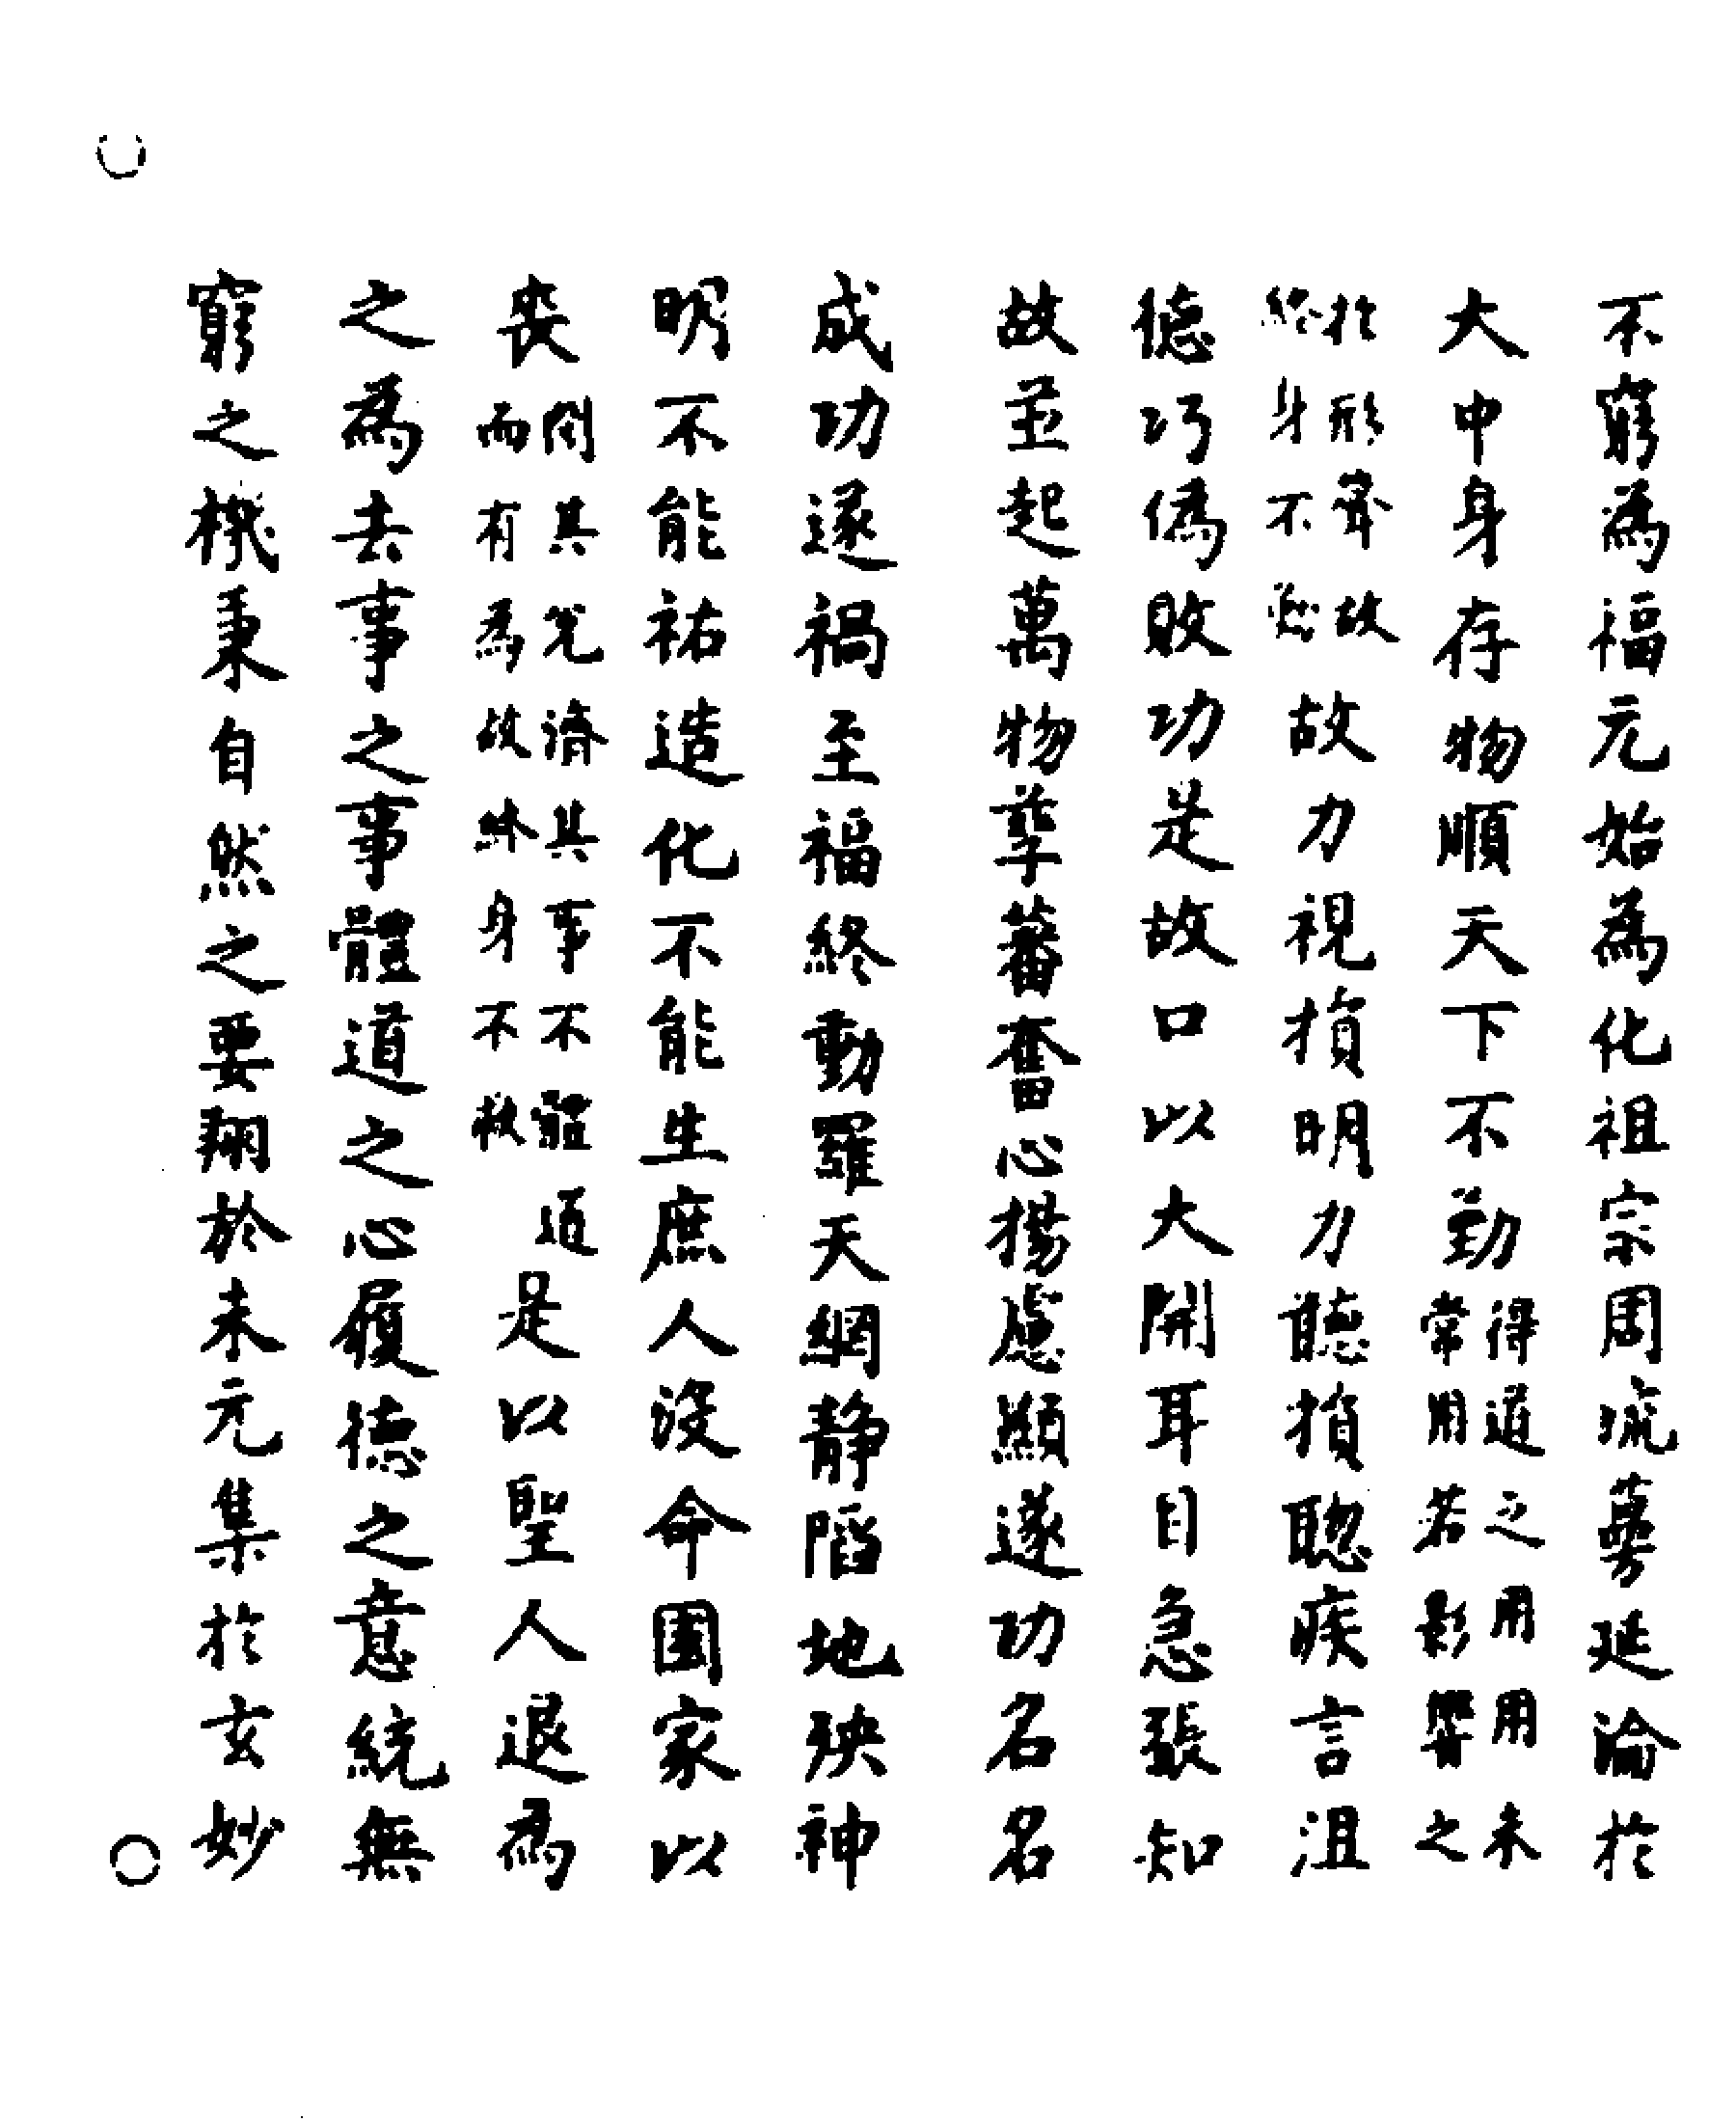 不窮為福元始為化祖宗周流萬延淪於
大中身存物順天下不勤得道之用用未常用若影響之
於形聲故終身不勤故力視損明力聽損聰疾言沮
德巧偽敗功是故口以大開耳目急張知
故並起萬物孽蕃奮心揚慮顯遂功名名
成功遂禍至福終動羅天網静陷地殃神
明不能祐造化不能生庶人没命國家以
喪開其兌濟其事不體道而有為故終身不救是以聖人退為
之為去事之事體道之心履德之意統無
窮之機秉自然之要翔於未元集於玄妙